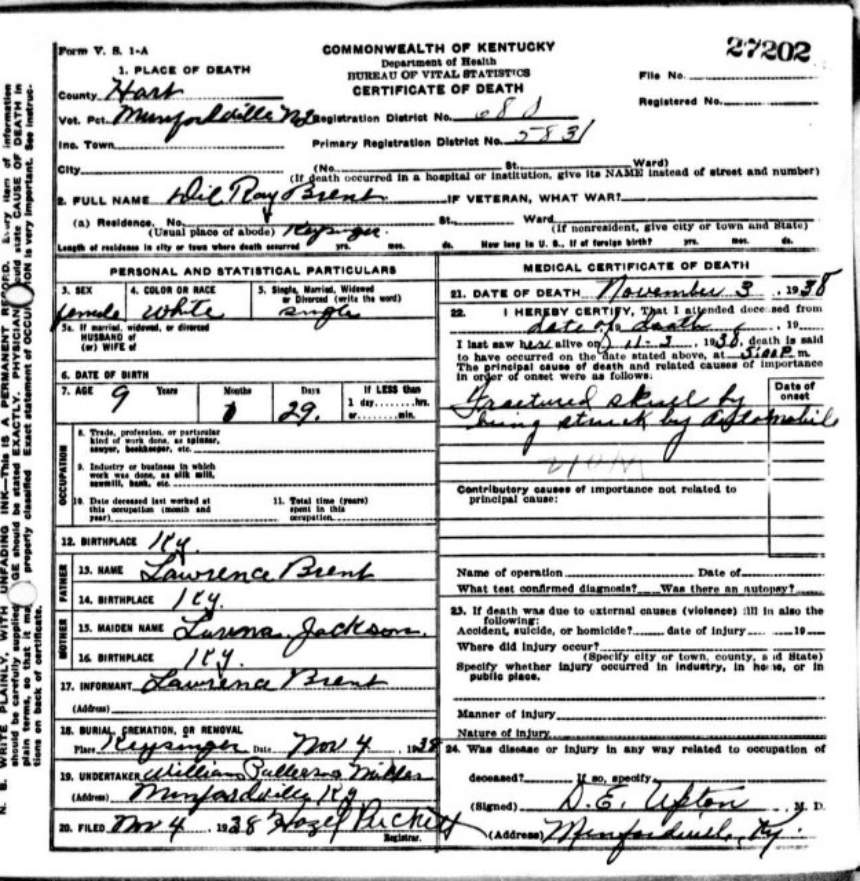 27202
Form V. S. 1-A
COMMONWEALTH OF KENTUCKY
Department of Health
BUREAU OF VITAL STATISTICS
CERTIFICATE OF DEATH
File No.
Registered No.
1. PLACE OF DEATH
County Hart
Vot. Pct. Munfordville Registration District No. 680
Inc. Town Primary Registration District No. 5831
City (No. St. Ward)
(If death occurred in a hospital or institution, give its NAME instead of street and number)
2. FULL NAME Wil Ray Brent IF VETERAN, WHAT WAR?
(a) Residence. No. St. Ward
(Usual place of abode) (If nonresident, give city or town and State)
Length of residence in city or town where death occurred yrs. mos. ds. How long in U. S., if of foreign birth? yrs. mos. ds.
PERSONAL AND STATISTICAL PARTICULARS
3. SEX 4. COLOR OR RACE 5. Single, Married, Widowed or Divorced (write the word)
female white single
5a. If married, widowed, or divorced
HUSBAND of
(or) WIFE of
6. DATE OF BIRTH
7. AGE Years Months Days If LESS than
9 29. 1 day hrs.
or min.
OCCUPATION
8. Trade, profession, or particular
kind of work done, as spinner,
sawyer, bookkeeper, etc.
9. Industry or business in which
work was done, as silk mill,
sawmill, bank, etc.
10. Date deceased last worked at
this occupation (month and
year)
11. Total time (years)
spent in this
occupation
12. BIRTHPLACE Ky.
FATHER
13. NAME Lawrence Brent
14. BIRTHPLACE Ky.
MOTHER
15. MAIDEN NAME Jackson.
16. BIRTHPLACE Ky.
17. INFORMANT Lawrence Brent
(Address)
18. BURIAL, CREMATION, OR REMOVAL
Place Date Nov 4, 1938
19. UNDERTAKER William
(Address) Munfordville Ky
20. FILED Nov 4, 1938 Hazel Puckett
Registrar.
MEDICAL CERTIFICATE OF DEATH
21. DATE OF DEATH November 3, 1938
22. I HEREBY CERTIFY, That I attended deceased from
date of death, 19
I last saw her alive on 11-3, 1938, death is said
to have occurred on the date stated above, at 5:00 P m.
The principal cause of death and related causes of importance
in order of onset were as follows:
Date of
onset
Fractured skull by
being struck by automobile
Contributory causes of importance not related to
principal cause:
Name of operation Date of
What test confirmed diagnosis? Was there an autopsy?
23. If death was due to external causes (violence) fill in also the
following:
Accident, suicide, or homicide? date of injury 19
Where did injury occur?
(Specify city or town, county, and State)
Specify whether injury occurred in industry, in home, or in
public place.
Manner of injury
Nature of injury
24. Was disease or injury in any way related to occupation of
deceased? If so, specify
(Signed) D. E. Upton M. D.
(Address) Munfordville, Ky.
N. B. WRITE PLAINLY, WITH UNFADING INK—This IS A PERMANENT RECORD. Every item of information
should be carefully supplied. GE should be stated EXACTLY. PHYSICIAN uld state CAUSE OF DEATH in
plain terms, so that it ma properly classified. Exact statement of OCCU ON is very important. See instruc-
tions on back of certificate.